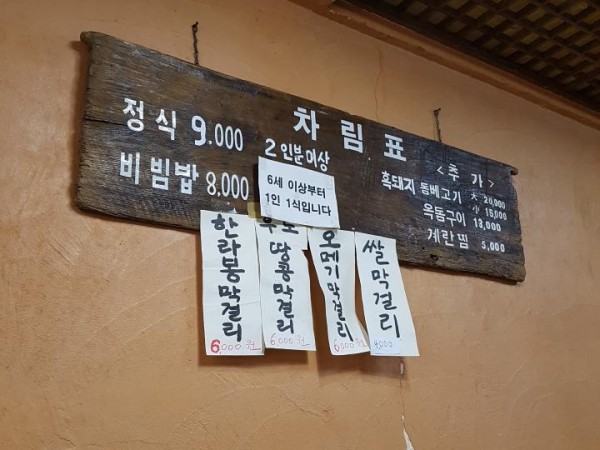 차림표
정식 9.000 2인분이상
비빔밥 8.000
6세 이상부터
1인 1식입니다
<추가>
흑돼지 돔베고기 大 20,000
小 15,000
옥돔구이 13,000
계란찜 5,000
한라봉막걸리
6,000원
우도
땅콩막걸리
6000원
오메기막걸리
6000원
쌀막걸리
4,000